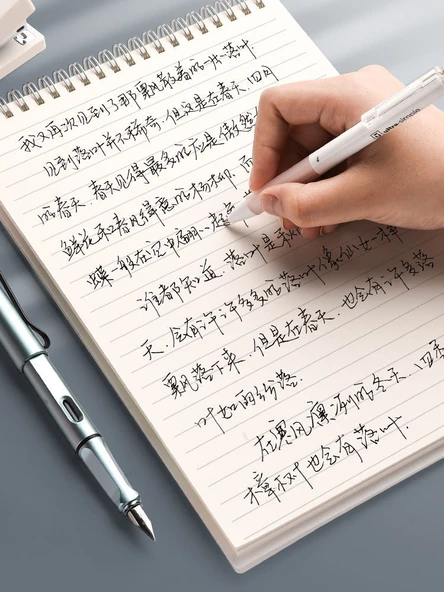 我又再次见到了那飘散着的一片落叶
见到落叶并不稀奇.但这是在春天,四月
的春天.春天见得最多的应是傲然
鲜花和春风得意的杨柳,而
蝶一般在记中翩
谁都知道,落叶是
天,会有许许多多的落叶像仙女一样
飘落下来,但是在春天,也会有许多落
叶如雨纷落.
在寒风凛冽的冬天,四季
樟树也会有落叶.
ultra-simple